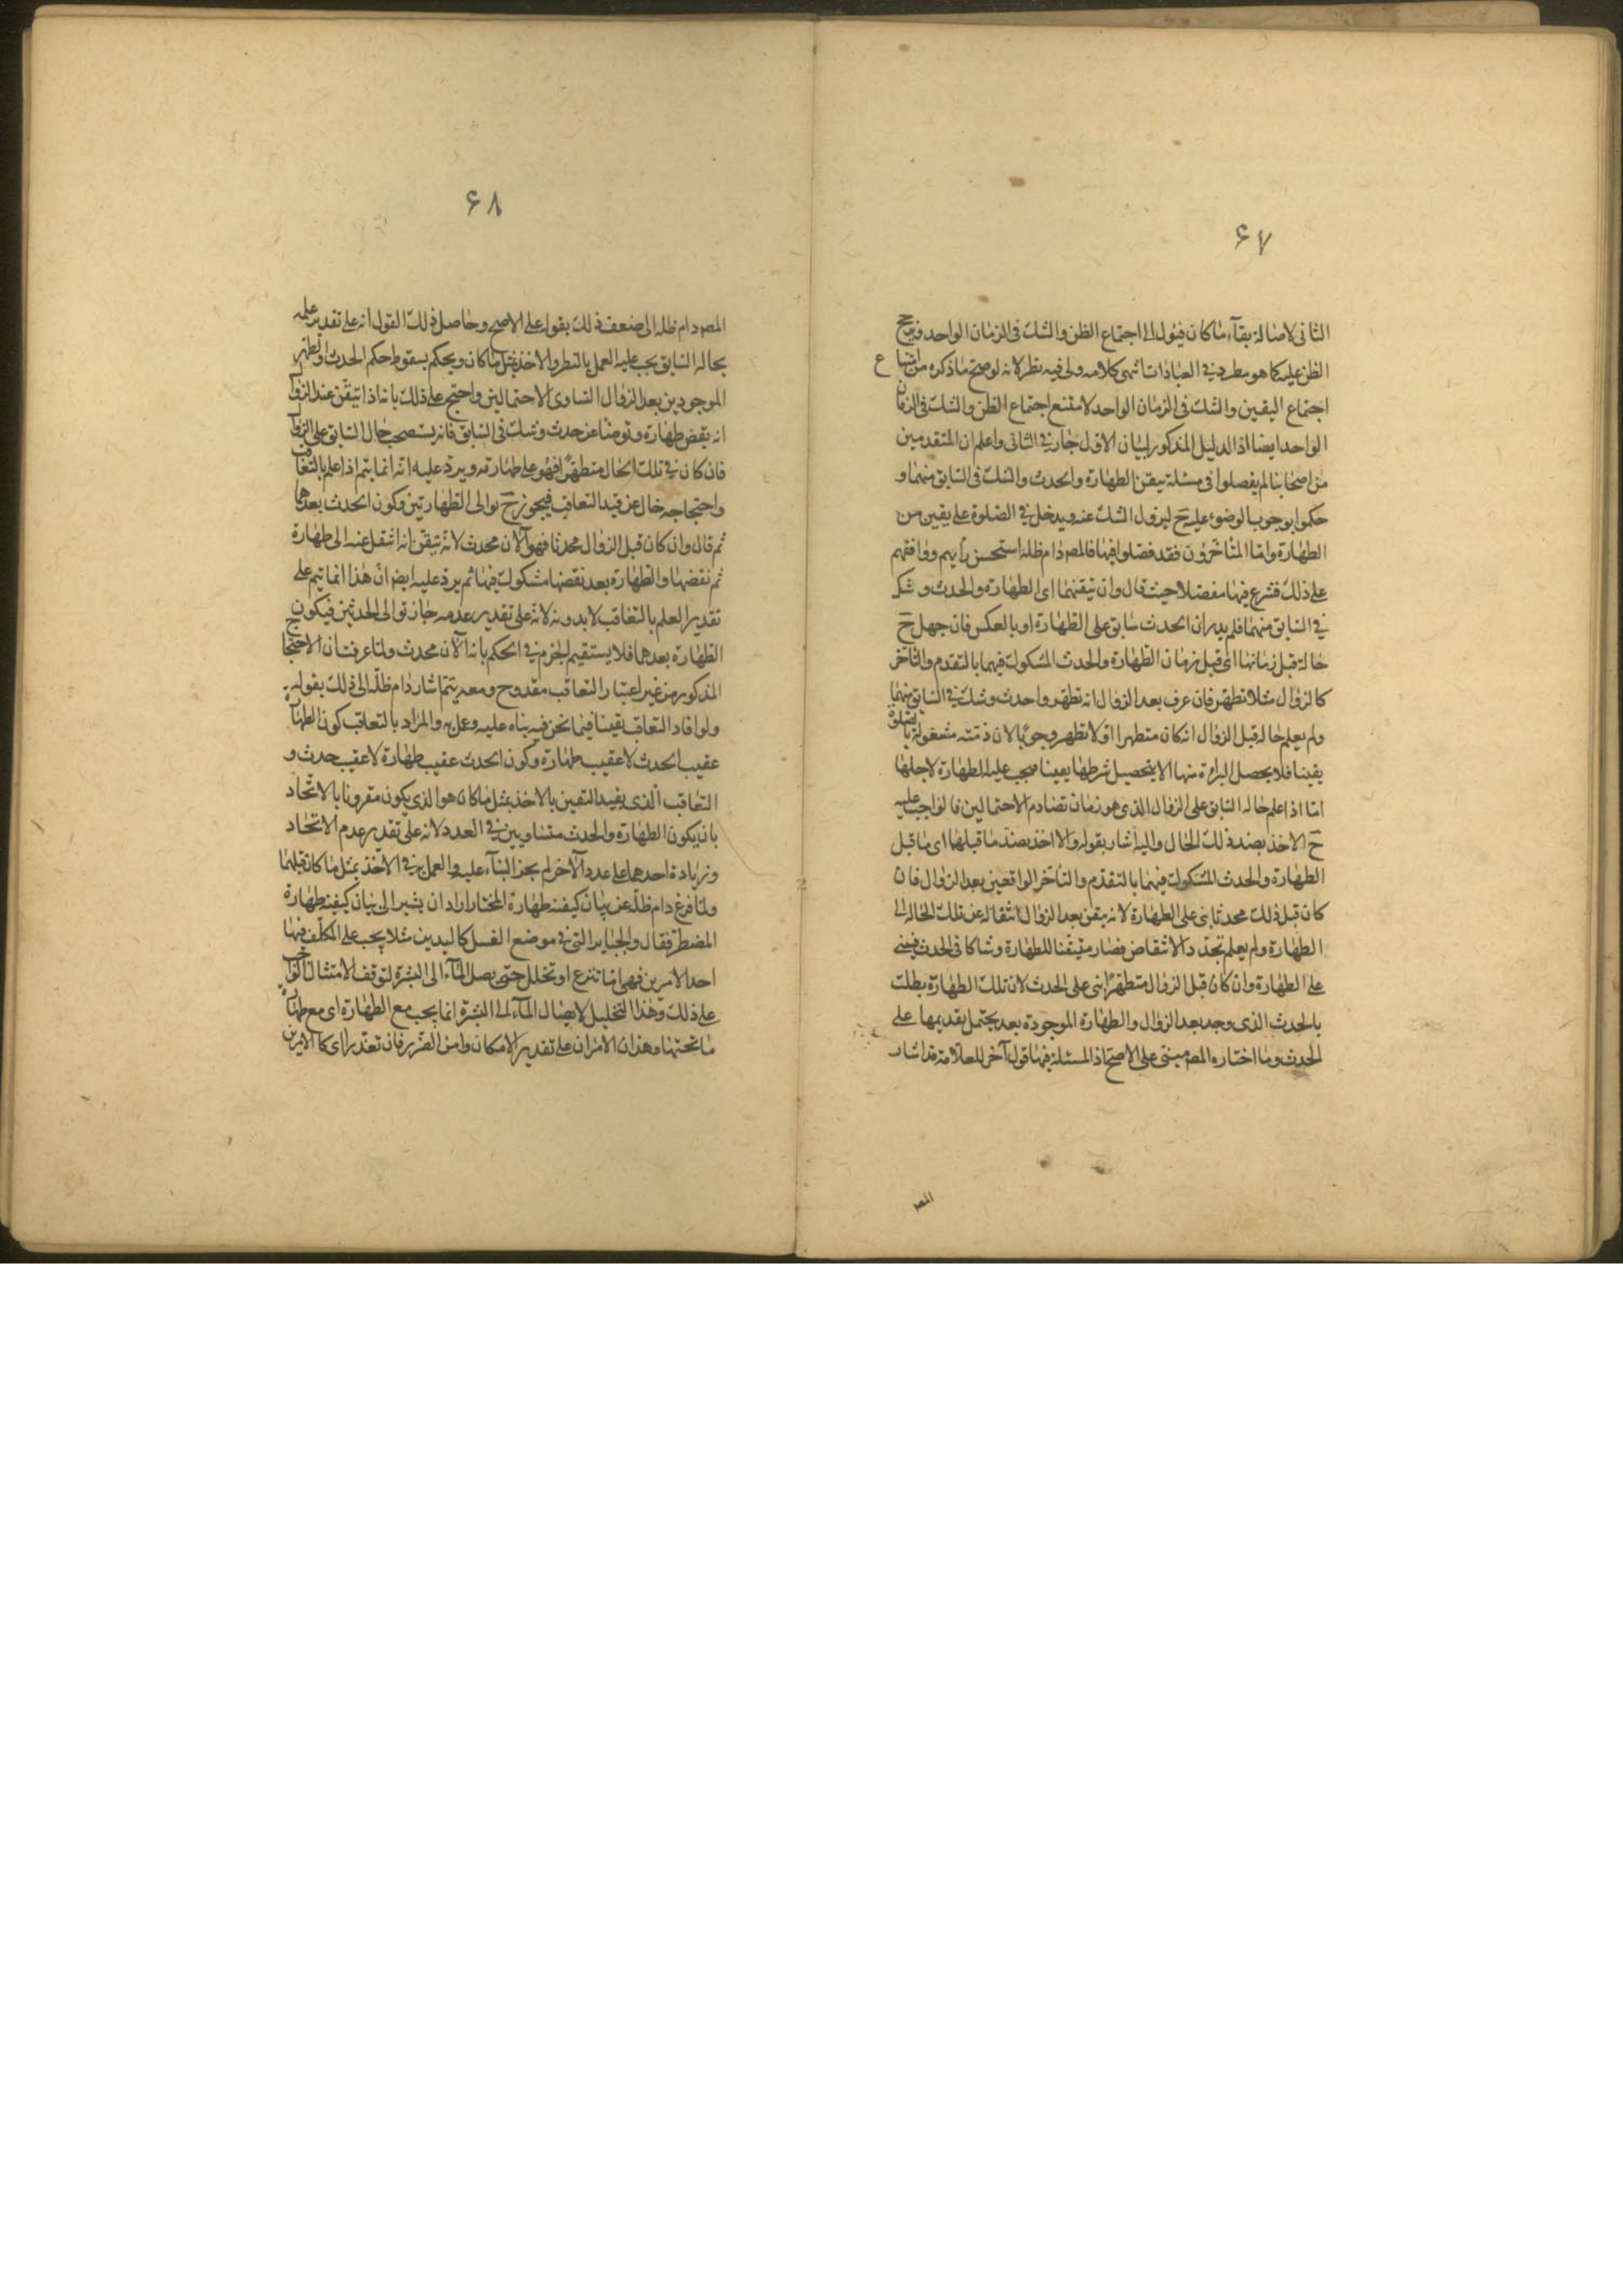 ۶۷
الثانى لاصالة بقآء ماكان فيئول الى اجتماع الظن والشك فى الزمان الواحد فيرجح
الظن عليه كما هو مطرد فى العبادات انتهى كلامه ولى فيه نظر لانه لو صح ما ذكره من امتناع
اجتماع اليقين والشك فى الزمان الواحد لامتنع اجتماع الظن والشك فى الزمان
الواحد ايضا اذ الدليل المذكور لبيان الاول جار فى الثانى واعلم ان المتقدمين
من اصحابنا لم يفصلوا فى مسئلة تيقن الطهارة والحدث والشك فى السابق منهما و
حكموا بوجوب الوضوء عليه ح ليزول الشك عنه ويدخل فى الصلوة على يقين من
الطهارة واما المتأخرون فقد فصلوا فيها فالمصر دام ظله استحسن رأيهم ووافقهم
على ذلك فشرع فيها مفصلا حيث قال وان تيقنهما اى الطهارة والحدث وشك
فى السابق منهما فلم يدر ان الحدث سابق على الطهارة او بالعكس فان جهل ح
حالة قبل زمانهما اى قبل زمان الطهارة والحدث المشكوك فيهما بالتقدم والتأخر
كالزوال مثلا تطهر فان عرف بعد الزوال انه تطهر واحدث وشك فى السابق منهما
ولم يعلم حاله قبل الزوال انه كان متطهرا او لا تطهر وجوبا لان ذمته مشغولة بالصلوة
يقينا فلا يحصل البرائة منها الا بتحصيل شرطها يقينا فيجب عليه الطهارة لاجلها
امّا اذا علم حاله السابق على الزوال الذى هو زمان تصادم الاحتمالين فالواجب عليه
ح الاخذ بضد ذلك الحال واليه اشار بقوله والا اخذ بضد ما قبلهما اى ما قبل
الطهارة والحدث المشكوك فيهما بالتقدم والتأخر الواقعين بعد الزوال فان
كان قبل ذلك محدثا بنى على الطهارة لانه تيقن بعد الزوال انتقاله عن تلك الحاله الى
الطهارة ولم يعلم تجدد الانتقاض فصار متيقنا للطهارة وشاكا فى الحدث فيبنى
على الطهارة وان كان قبل الزوال متطهرًا بنى على الحدث لان تلك الطهارة بطلت
بالحدث الذى وجد بعد الزوال والطهارة الموجودة بعد يحتمل تقديمها على
الحدث وما اختاره المصر مبنى على الاصح اذ المسئلة فيها قول آخر للعلامة قد اشار
المصر
۶۸
المصر دام ظله الى ضعف ذلك بقوله على الاصح وحاصل ذلك القول انه على تقدير علمه
بحاله السابق يجب عليه العمل بالنظر والاخذ بمثل ما كان ويحكم بسقوط حكم الحدث والتطهر
الموجودين بعد الزوال لتساوى الاحتمالين واحتج على ذلك بانه اذا تيقن عند الزوال
انه نقض طهارة وتوضأ عن حدث وشك فى السابق فانه يستصحب حال السابق على الزوال
فان كان فى تلك الحال متطهرًا فهو على طهارته ويرد عليه انه انما يتم اذا علم بالتعاقب
واحتجاجه خال عن قيد التعاقب فيجوز ح توالى الطهارتين وكون الحدث بعدهما
ثم قال وان كان قبل الزوال محدثا فهو الآن محدث لانه تيقن انه انتقل عنه الى طهارة
ثم نقضها والطهارة بعد نقضها مشكوك فيها ثم يرد عليه ايضا ان هذا انما يتم على
تقدير العلم بالتعاقب لا بدونه لانه على تقدير عدمه جاز توالى الحدثين فيكون
الطهارة بعدهما فلا يستقيم الجزم فى الحكم بانه الآن محدث ولما عرفت ان الاحتجاج
المذكور من غير اعتبار التعاقب مقدوح ومعه يتم اشار دام ظله الى ذلك بقوله
ولو افاد التعاقب يقينا فيما نحن فيه بناه عليه وعمل به والمراد بالتعاقب كون الطهارة
عقيب الحدث لا عقيب طهارة وكون الحدث عقيب طهارة لا عقيب حدث و
التعاقب الذى يفيد التعين بالاخذ بمثل ما كان هو الذى يكون مقرونا بالاتحاد
بان يكون الطهارة والحدث متساويين فى العدد لانه على تقدير عدم الاتحاد
وزيادة احدهما على عدد الآخر لم يجز البنآء عليه والعمل فى الاخذ بمثل ما كان قبلهما
ولما فرغ دام ظله عن بيان كيفية طهارة المختار اراد ان يشير الى بيان كيفية طهارة
المضطر فقال والجباير التى فى موضع الغسل كاليدين مثلا يجب على المكلف فيها
احد الامرين فهى اما تنزع او تخلل حتى يصل المآء الى البشرة لتوقف الامتثال الواجب
على ذلك وهذا التخليل لايصال المآء الى البشرة انما يجب مع الطهارة اى مع طهارة
ما تحتها وهذان الامران على تقدير الامكان وامن الضرر فان تعذر اى كلا الامرين